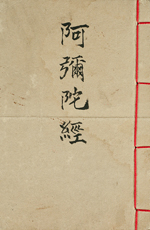 阿彌陀經